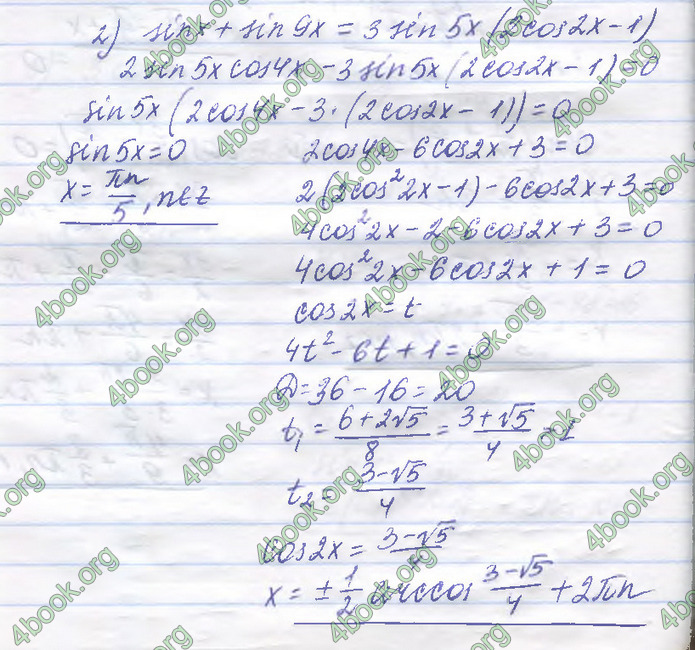 2) sinx + sin9x = 3 sin5x (2cos2x - 1)
2 sin5x cos4x - 3 sin5x (2cos2x - 1) = 0
sin5x (2cos4x - 3·(2cos2x - 1)) = 0
sin5x = 0
x = πn/5, n∈z
2cos4x - 6cos2x + 3 = 0
2(2cos²2x - 1) - 6cos2x + 3 = 0
4cos²2x - 2 - 6cos2x + 3 = 0
4cos²2x - 6cos2x + 1 = 0
cos2x = t
4t² - 6t + 1 = 0
D = 36 - 16 = 20
t₁ = (6+2√5)/8 = (3+√5)/4
t₂ = (3-√5)/4
cos2x = (3-√5)/4
x = ±1/2 arccos (3-√5)/4 + 2πn
4book.org